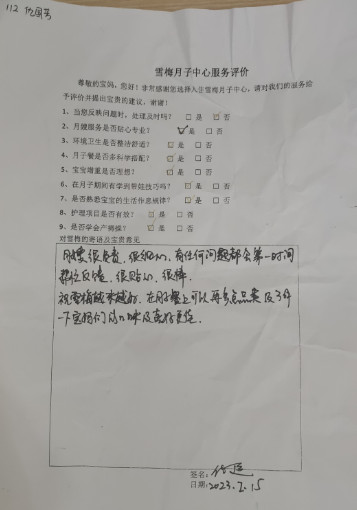 112
雪梅月子中心服务评价
尊敬的宝妈，您好！非常感谢您选择入住雪梅月子中心，请对我们的服务给
予评价并提出宝贵的建议，谢谢！
1、当您反映问题时，处理及时吗？ □是 □否
2、月嫂服务是否贴心专业？ □是 □否
3、环境卫生是否整洁舒适？ □是 □否
4、月子餐是否多科学搭配？ □是 □否
5、宝宝增重是否理想？ □是 □否
6、在月子期间有学到带娃技巧吗？ □是 □否
7、是否熟悉宝宝的生活作息规律？ □是 □否
8、护理项目是否有效？ □是 □否
9、是否学会产褥操？ □是 □否
对雪梅的寄语及宝贵意见
月嫂很负责，很细心，有任何问题都会第一时间
帮忙反馈，很贴心，很棒。
祝雪梅越来越好，在月子餐上可以再多点品类及了解
一下宝妈们的口味及喜好更佳。
签名：
日期：2023.7.15